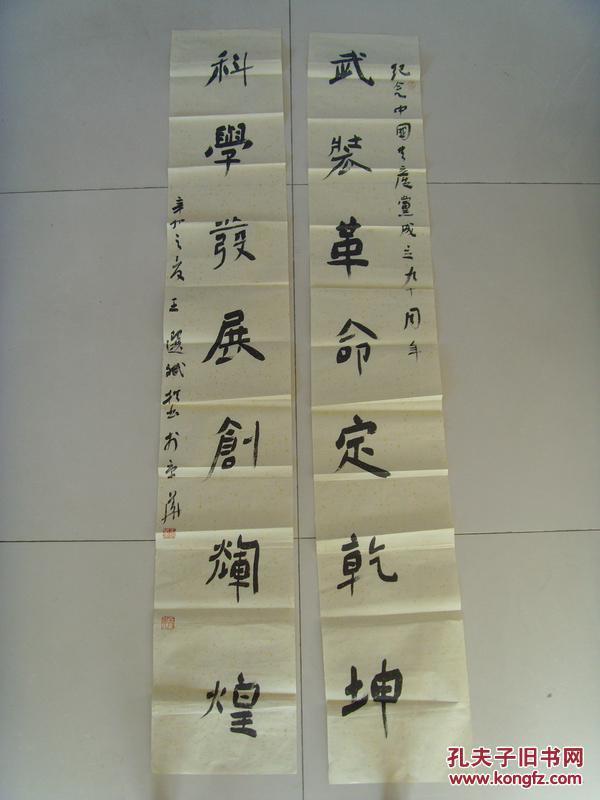 纪念中國共產黨成立九十周年
武裝革命定乾坤
科學發展創爛煌
辛卯之夏王選斌撰书於京華
孔夫子旧书网
www.kongfz.com